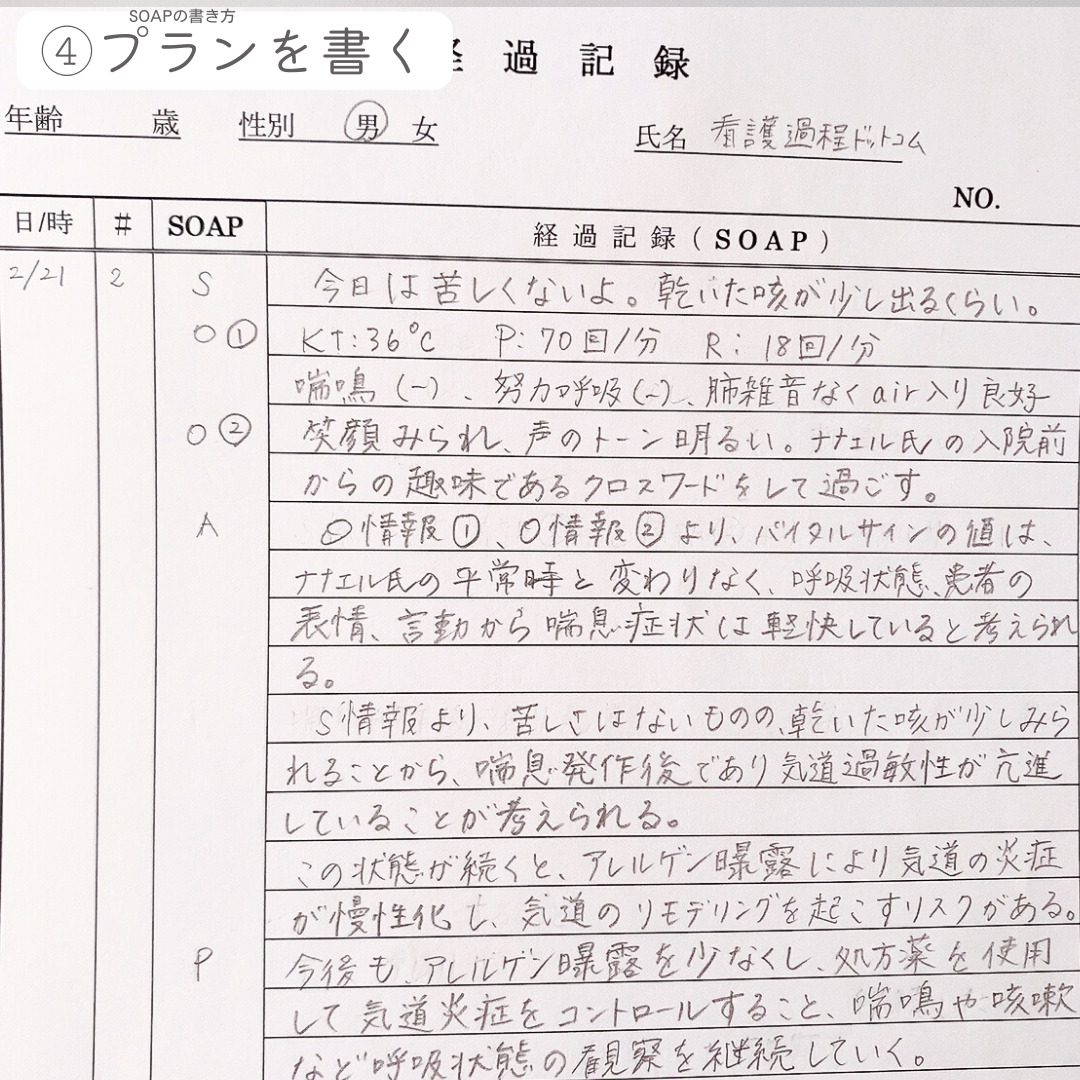 SOAPの書き方
④プランを書く
経過記録
年齢 歳 性別 男 女
氏名 看護過程ドットコム
NO.
日/時 # SOAP 経過記録(SOAP)
2/21 2 S 今日は苦しくないよ。乾いた咳が少し出るくらい。
O① KT:36℃ P:70回/分 R:18回/分
喘鳴(−)、努力呼吸(−)、肺雑音なくair入り良好
O② 笑顔みられ、声のトーン明るい。ナナエル氏の入院前
からの趣味であるクロスワードをして過ごす。
A O情報①、O情報②より、バイタルサインの値は、
ナナエル氏の平常時と変わりなく、呼吸状態、患者の
表情、言動から喘息症状は軽快していると考えられ
る。
S情報より、苦しさはないものの、乾いた咳が少しみら
れることから、喘息発作後であり気道過敏性が亢進
していることが考えられる。
この状態が続くと、アレルゲン曝露により気道の炎症
が慢性化し、気道のリモデリングを起こすリスクがある。
P 今後も、アレルゲン曝露を少なくし、処方薬を使用
して気道炎症をコントロールすること、喘鳴や咳嗽
など呼吸状態の観察を継続していく。